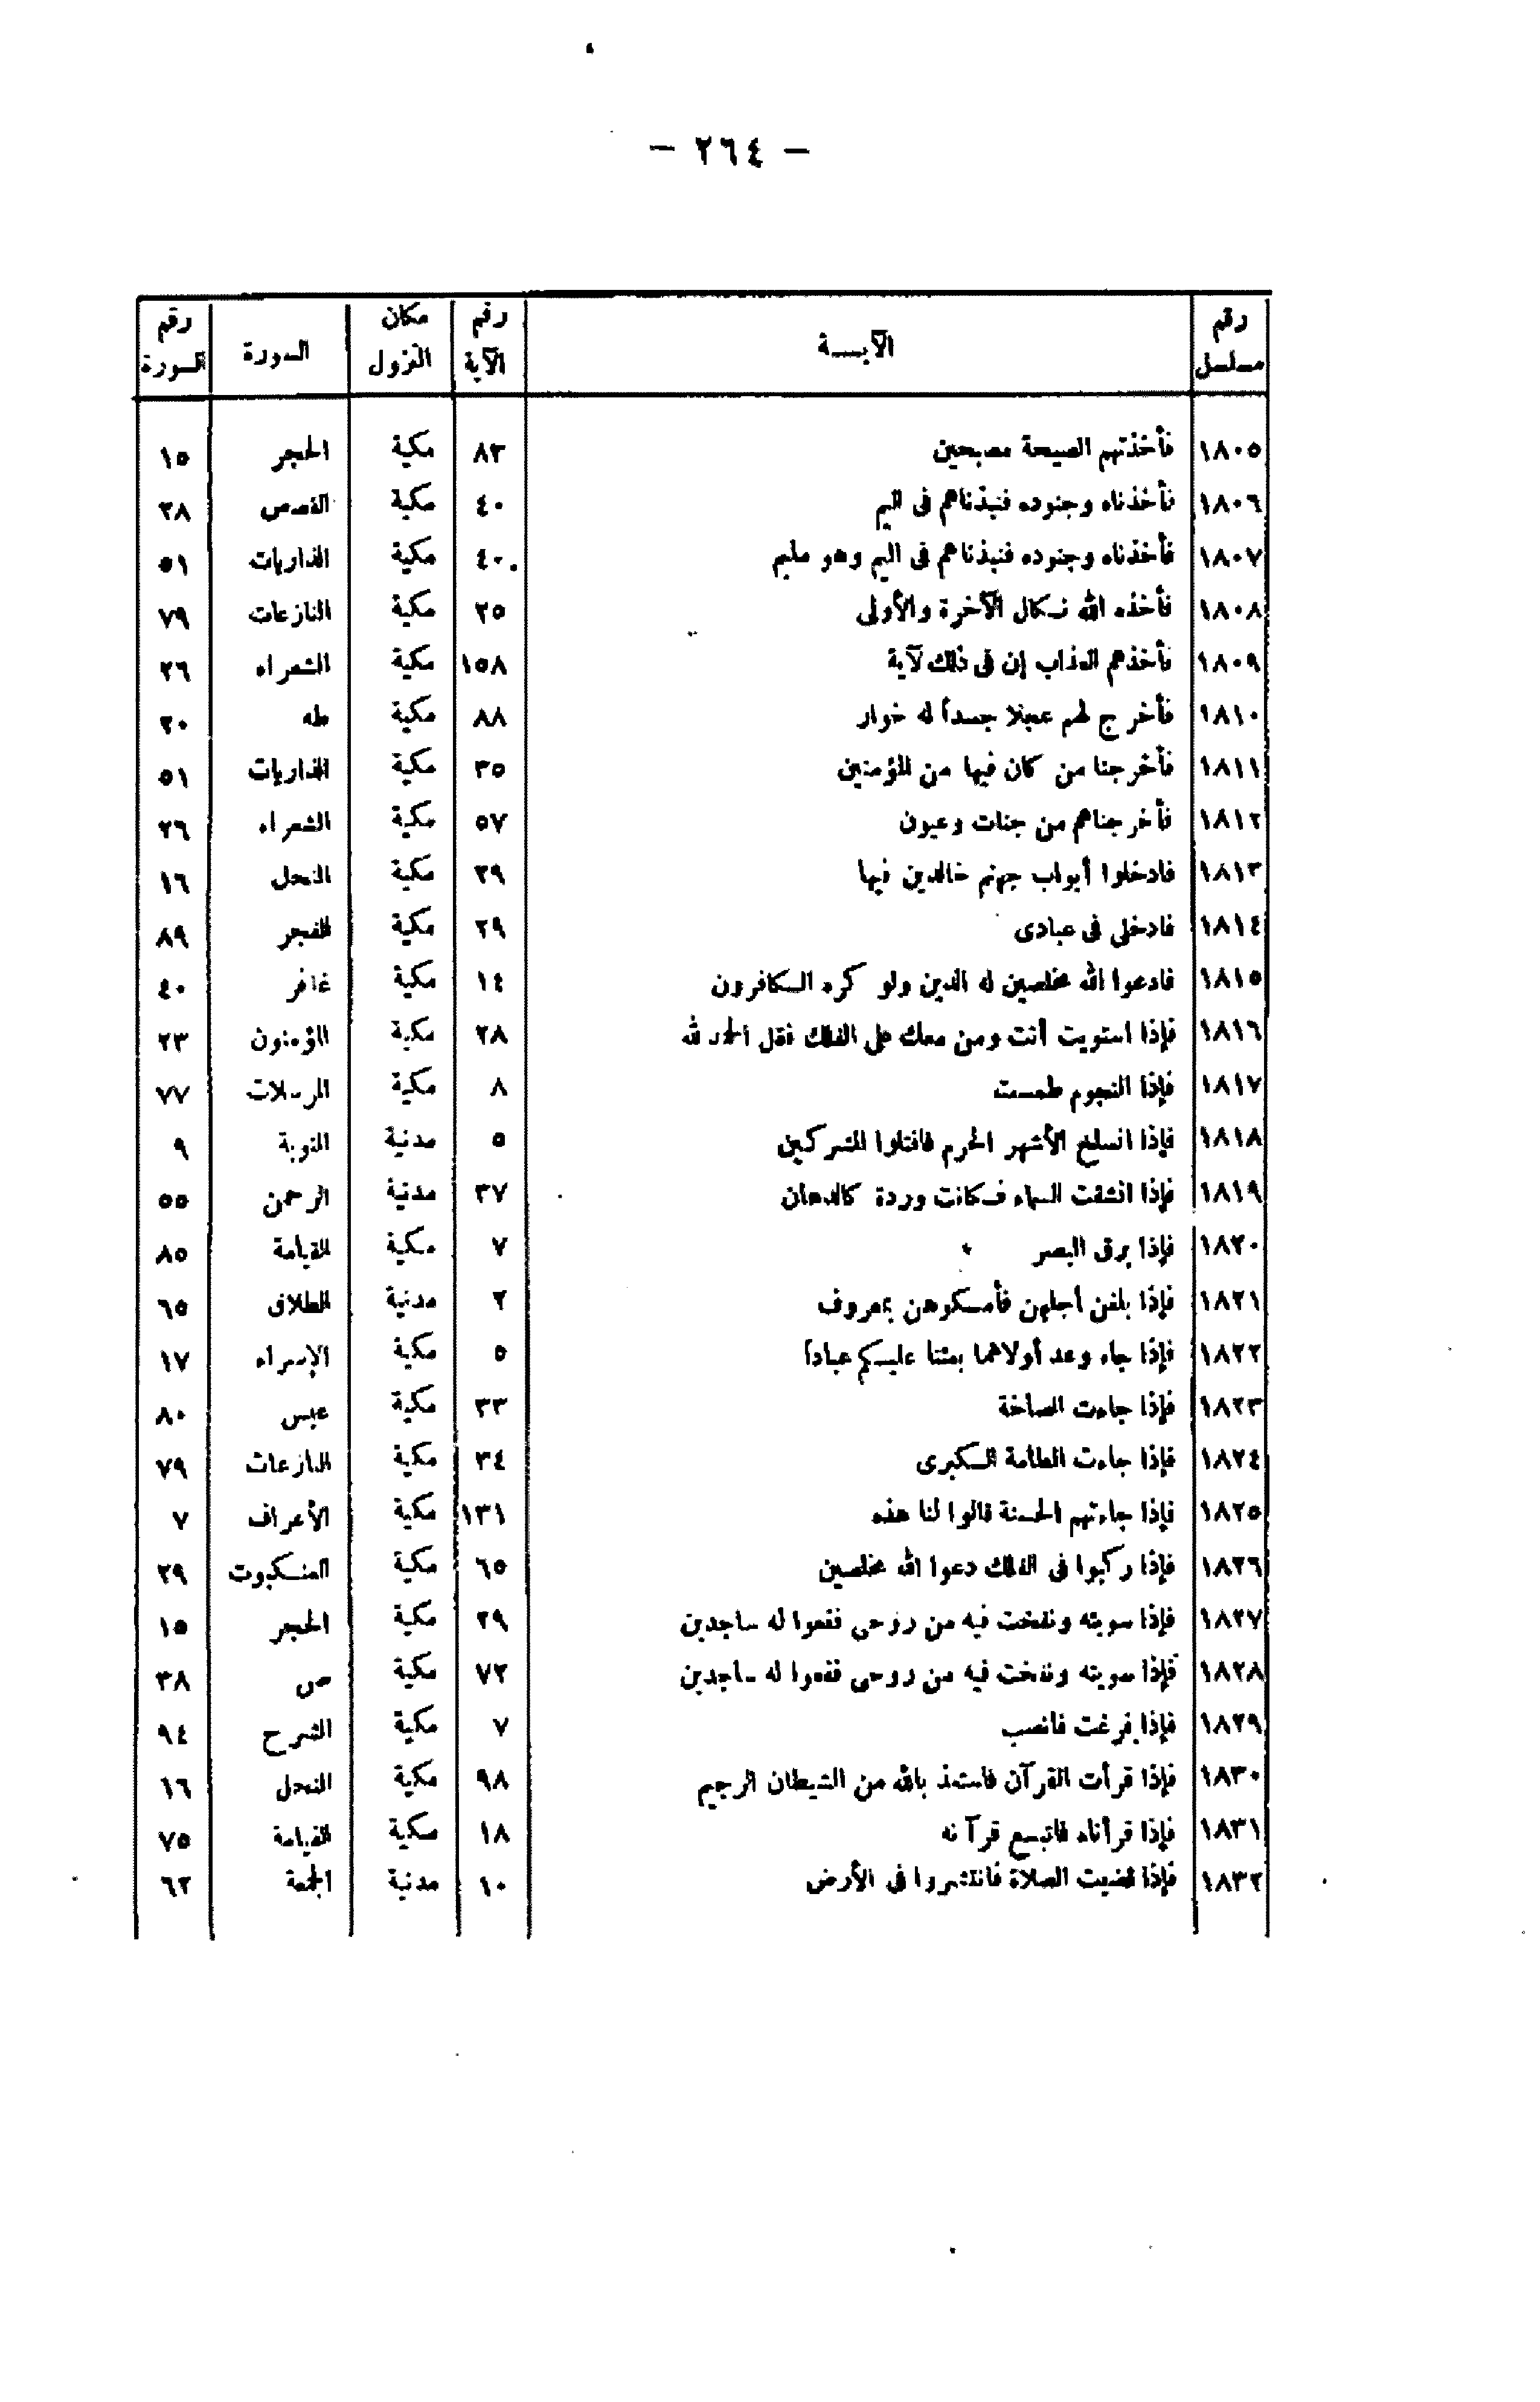 — ٢٦٤ —
رقم مسلسل | الآيــة | رقم الآية | مكان النزول | السورة | رقم السورة
١٨٠٥ | فأخذتهم الصيحة مصبحين | ٨٣ | مكية | الحجر | ١٥
١٨٠٦ | فأخذناه وجنوده فنبذناهم فى اليم | ٤٠ | مكية | القصص | ٢٨
١٨٠٧ | فأخذناه وجنوده فنبذناهم فى اليم وهو مليم | ٤٠ | مكية | الذاريات | ٥١
١٨٠٨ | فأخذه الله نكال الآخرة والأولى | ٢٥ | مكية | النازعات | ٧٩
١٨٠٩ | فأخذهم العذاب إن فى ذلك لآية | ١٥٨ | مكية | الشعراء | ٢٦
١٨١٠ | فأخرج لهم عجلا جسداً له خوار | ٨٨ | مكية | طه | ٢٠
١٨١١ | فأخرجنا من كان فيها من المؤمنين | ٣٥ | مكية | الذاريات | ٥١
١٨١٢ | فأخرجناهم من جنات وعيون | ٥٧ | مكية | الشعراء | ٢٦
١٨١٣ | فادخلوا أبواب جهنم خالدين فيها | ٢٩ | مكية | النحل | ١٦
١٨١٤ | فادخلى فى عبادى | ٢٩ | مكية | الفجر | ٨٩
١٨١٥ | فادعوا الله مخلصين له الدين ولو كره الكافرون | ١٤ | مكية | غافر | ٤٠
١٨١٦ | فإذا استويت أنت ومن معك على الفلك فقل الحمد لله | ٢٨ | مكية | المؤمنون | ٢٣
١٨١٧ | فإذا النجوم طمست | ٨ | مكية | المرسلات | ٧٧
١٨١٨ | فإذا انسلخ الأشهر الحرم فاقتلوا المشركين | ٥ | مدنية | التوبة | ٩
١٨١٩ | فإذا انشقت السماء فكانت وردة كالدهان | ٣٧ | مدنية | الرحمن | ٥٥
١٨٢٠ | فإذا برق البصر | ٧ | مكية | القيامة | ٨٥
١٨٢١ | فإذا بلغن أجلهن فأمسكوهن بمعروف | ٢ | مدنية | الطلاق | ٦٥
١٨٢٢ | فإذا جاء وعد أولاهما بعثنا عليكم عباداً | ٥ | مكية | الإسراء | ١٧
١٨٢٣ | فإذا جاءت الصاخة | ٣٣ | مكية | عبس | ٨٠
١٨٢٤ | فإذا جاءت الطامة الكبرى | ٣٤ | مكية | النازعات | ٧٩
١٨٢٥ | فإذا جاءتهم الحسنة قالوا لنا هذه | ١٣١ | مكية | الأعراف | ٧
١٨٢٦ | فإذا ركبوا فى الفلك دعوا الله مخلصين | ٦٥ | مكية | العنكبوت | ٢٩
١٨٢٧ | فإذا سويته ونفخت فيه من روحى فقعوا له ساجدين | ٢٩ | مكية | الحجر | ١٥
١٨٢٨ | فإذا سويته ونفخت فيه من روحى فقعوا له ساجدين | ٧٢ | مكية | ص | ٣٨
١٨٢٩ | فإذا فرغت فانصب | ٧ | مكية | الشرح | ٩٤
١٨٣٠ | فإذا قرأت القرآن فاستعذ بالله من الشيطان الرجيم | ٩٨ | مكية | النحل | ١٦
١٨٣١ | فإذا قرأناه فاتبع قرآنه | ١٨ | مكية | القيامة | ٧٥
١٨٣٢ | فإذا قضيت الصلاة فانتشروا فى الأرض | ١٠ | مدنية | الجمعة | ٦٢